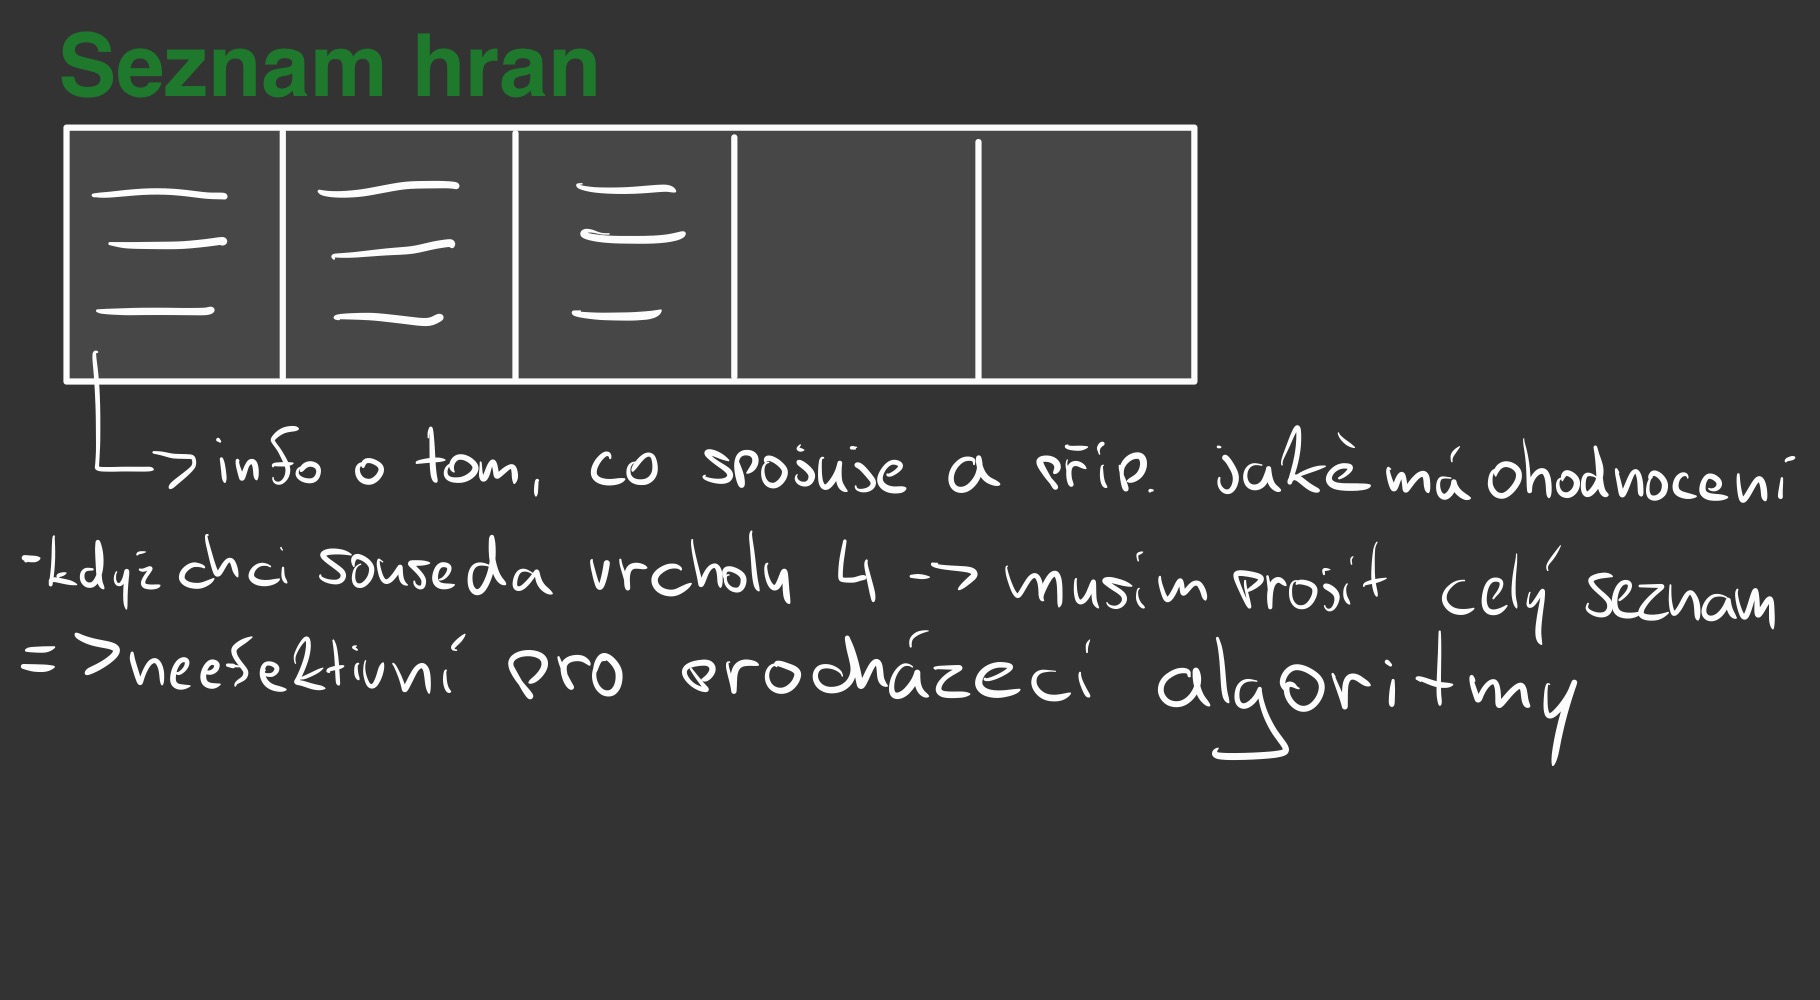 Seznam hran
-> info o tom, co spojuje a příp. jaké má ohodnocení
-když chci souseda vrcholu 4 -> musím projít celý seznam
=> neefektivní pro procházecí algoritmy